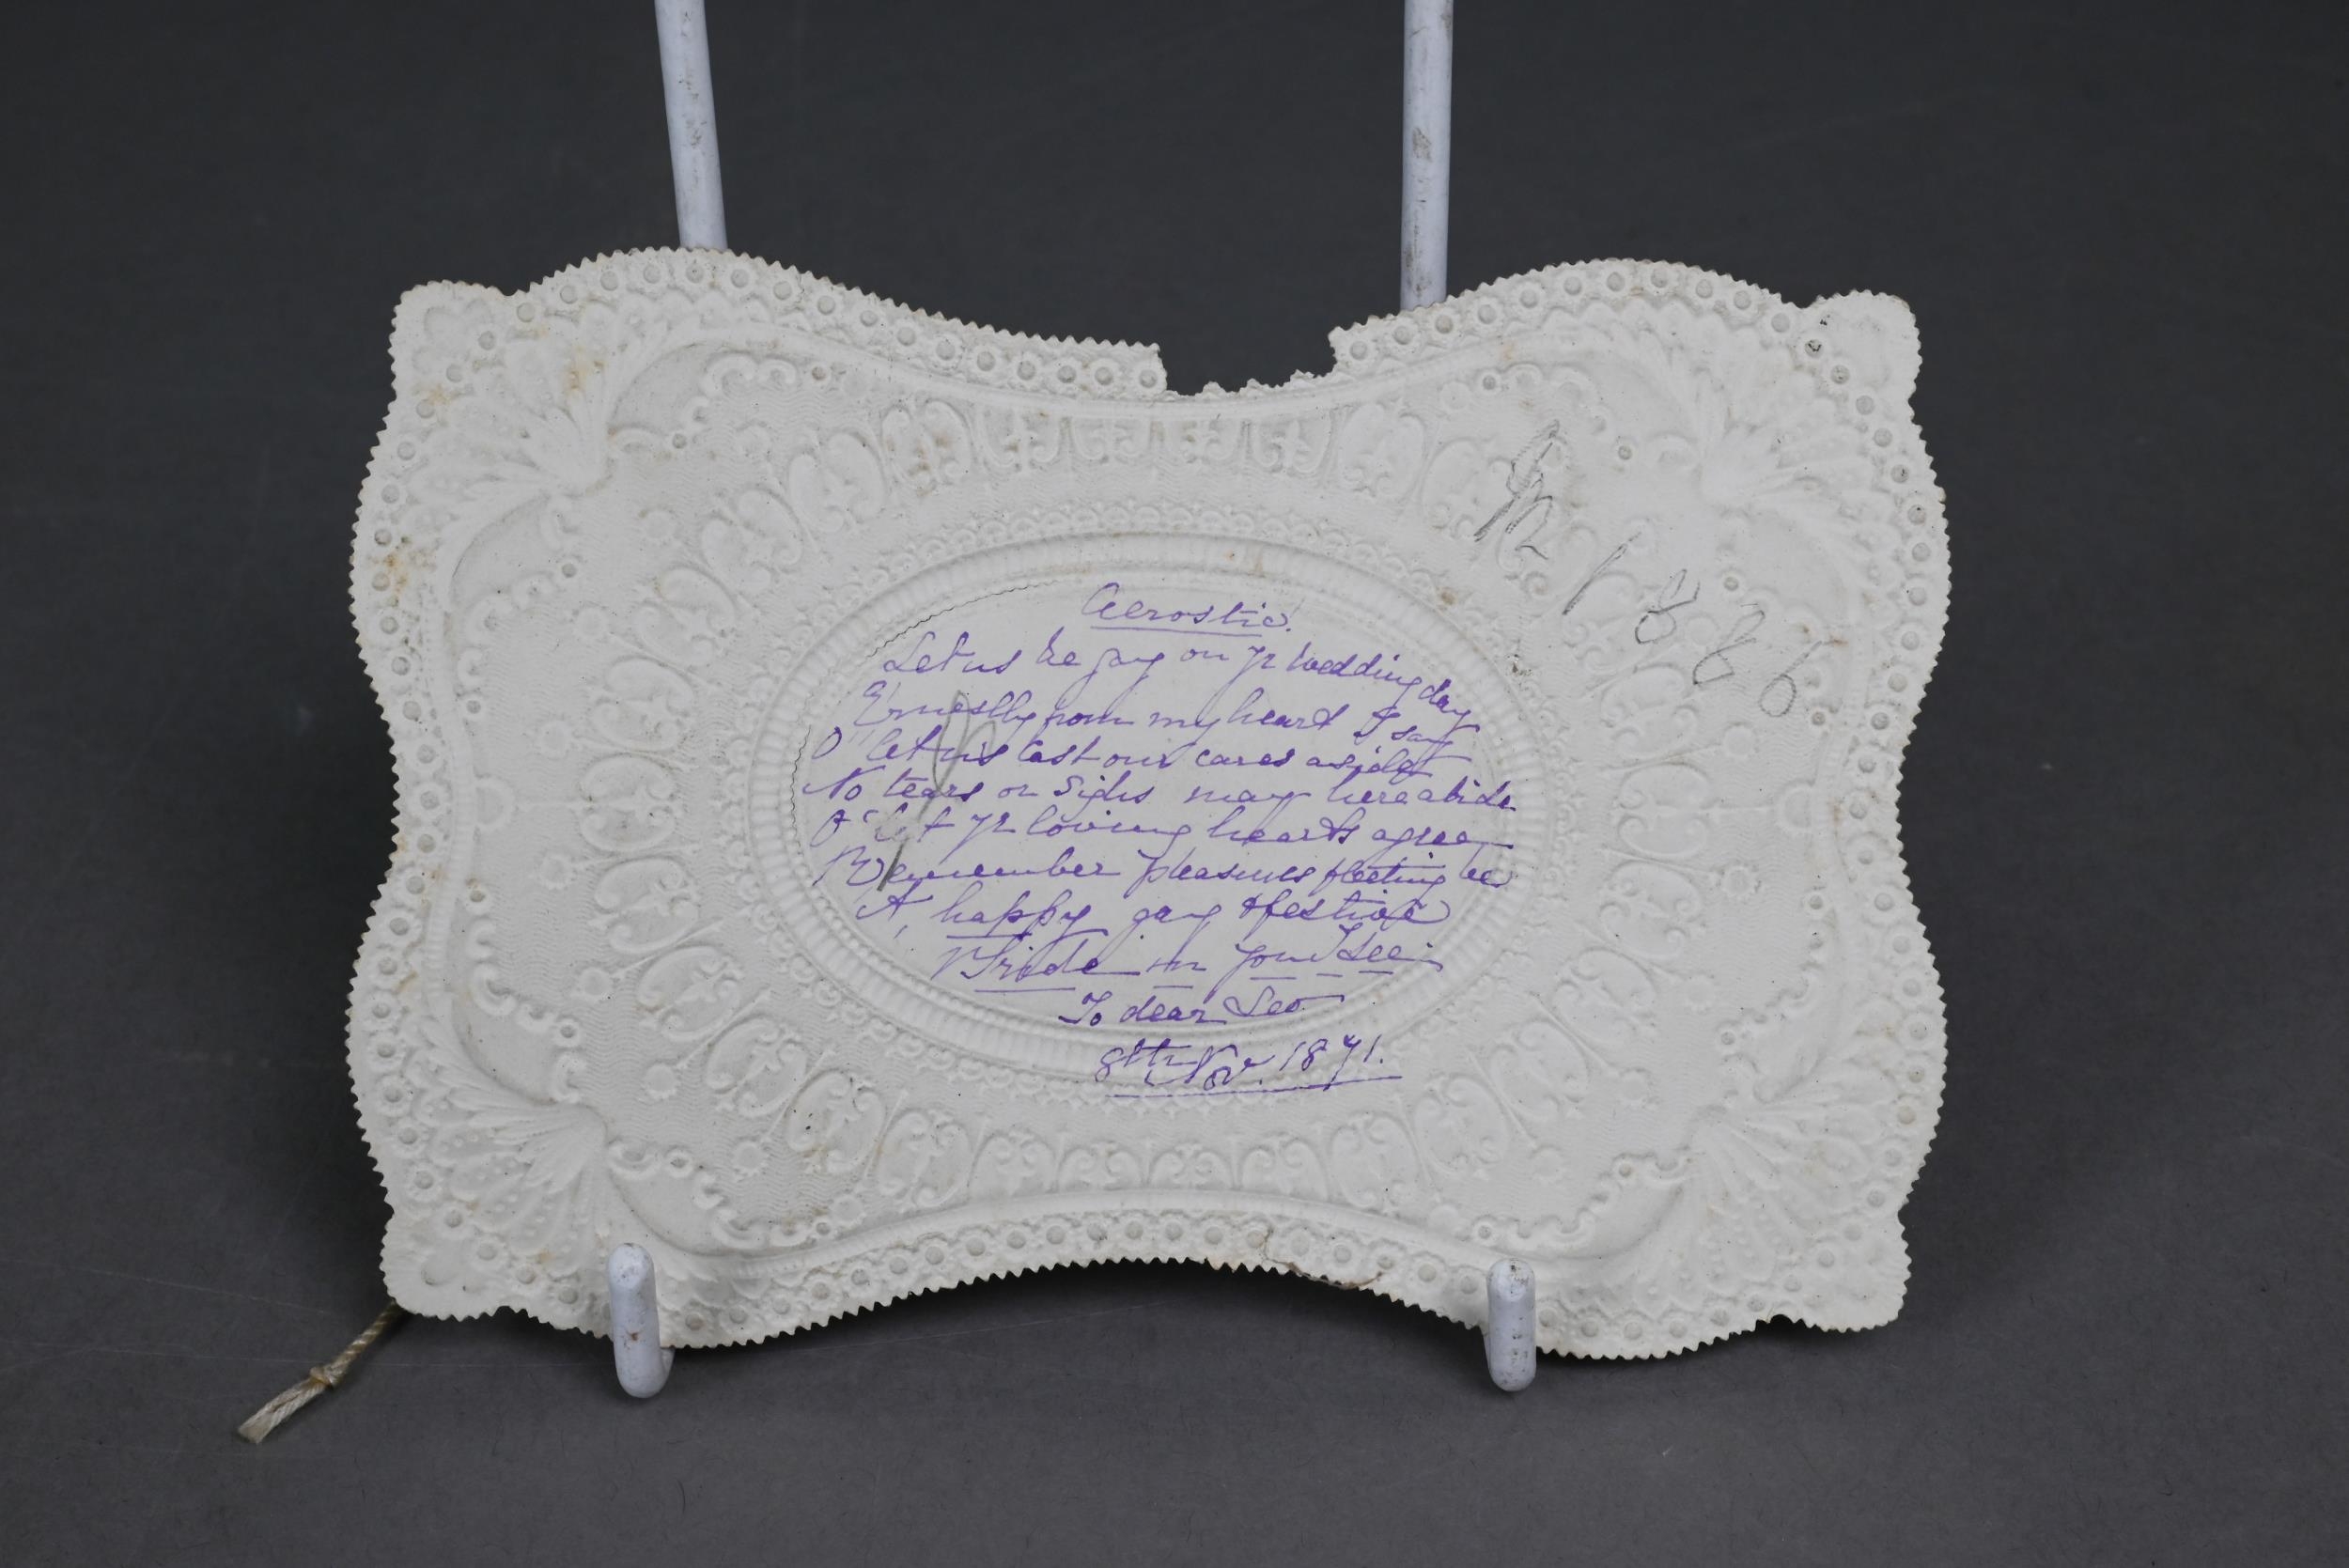 Acrostic.
Let us be gay on yr wedding day
Ernestly from my heart I say
O' let us cast our cares aside
No tears or Sighs may here abide
O' let yr loving hearts agree
Remember pleasures fleeting be
A, happy gay & festive
Bride in you I see
To dear Leo
8th Nov. 1871.
1886